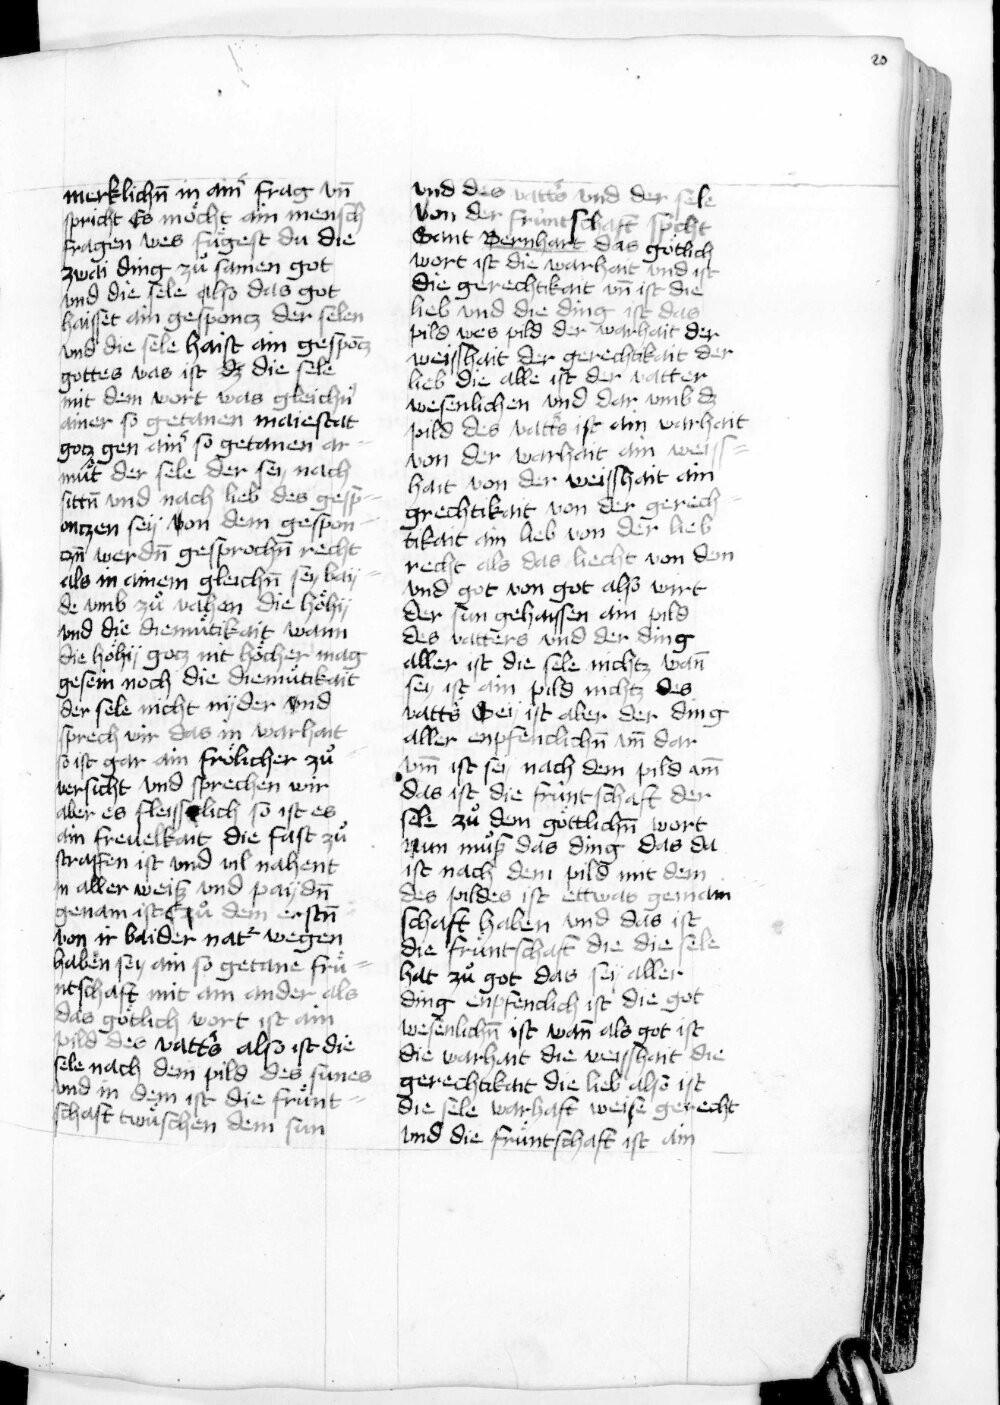 20
merklichn̄ in ain᷑ frag vn̄
spricht Es möcht ain mensch
fragen wes fügest du die
zwai ding zů samen got
vnd die sele also das got
haisset ain gespontz der selen
vnd die sele haist ain gespōtz
gottes was ist dz die sele
mit dem wort was gleichn᷑
ainer so getanen maiestat
gotz gen ain᷑ so getanen ar-
můt der sele der seij nach
sittn̄ vnd nach lieb des gesp-
ontzen seij Von dem gespon-
czn̄ werdn̄ gesprochn̄ recht
als in ainem gleichn̄ seij baij-
de vmb zů vahen die höhij
vnd die diemůtikait wann
die höhij gotz nit höcher mag
gesein noch die diemůtikait
der sele nicht nijder Vnd
sprech wir das in warhait
so ist gar ain frölicher zů-
versicht vnd sprechen wir
aber es fleisslich so ist es
ain freuelkait die fast zů
straffen ist vnd vil nahent
in aller weiß vnd paijdn̄
genam ist zů dem erstn̄
von ir baider nat᷑ wegen
haben seij ain so getane frü-
ntschaft mit ain ander als
das götlich wort ist ain
pild des vatt᷑s also ist die
sele nach dem pild des sunes
vnd in dem ist die frünt-
schaft twüschen dem sun
vnd des vatt᷑s vnd der sele
Von der früntschaft spricht
Sant Bernhart das götlich
wort ist die warhait vnd ist
die gerechtikait vn̄ ist die
lieb vnd die ding ist das
pild wes pild der warhait der
weisshait der gerechtikait der
lieb die alle ist der vatter
wesenlichen vnd dar vmb dz
pild des vatt᷑s ist ain warhait
von der warhait ain weiss-
hait von der weisshait ain
grechtikait von der gerech-
tikait ain lieb von der lieb
recht als das liecht von dem
vnd got von got also wirt
der sun gehaissen ain pild
des vatters vnd der ding
aller ist die sele nichtz wan̄
seij ist ain pild nichtz des
vatt᷑s Seij ist aber der ding
aller enpfenclichn̄ vn̄ dar
vm̄ ist seij nach dem pild vm̄
das ist die früntschaft der
sele zů dem göttlichn̄ wort
Nun můß das ding das da
ist nach dem pild mit dem
des pildes ist ettwas gemain
schaft haben vnd das ist
die früntschaft die die sele
hat zů got das seij aller
ding enpfenclich ist die got
wesenlichn̄ ist wan̄ als got ist
die warhait die weisshait die
gerechtikait die lieb also ist
die sele warhaft weise gerecht
vnd die früntschaft ist ain